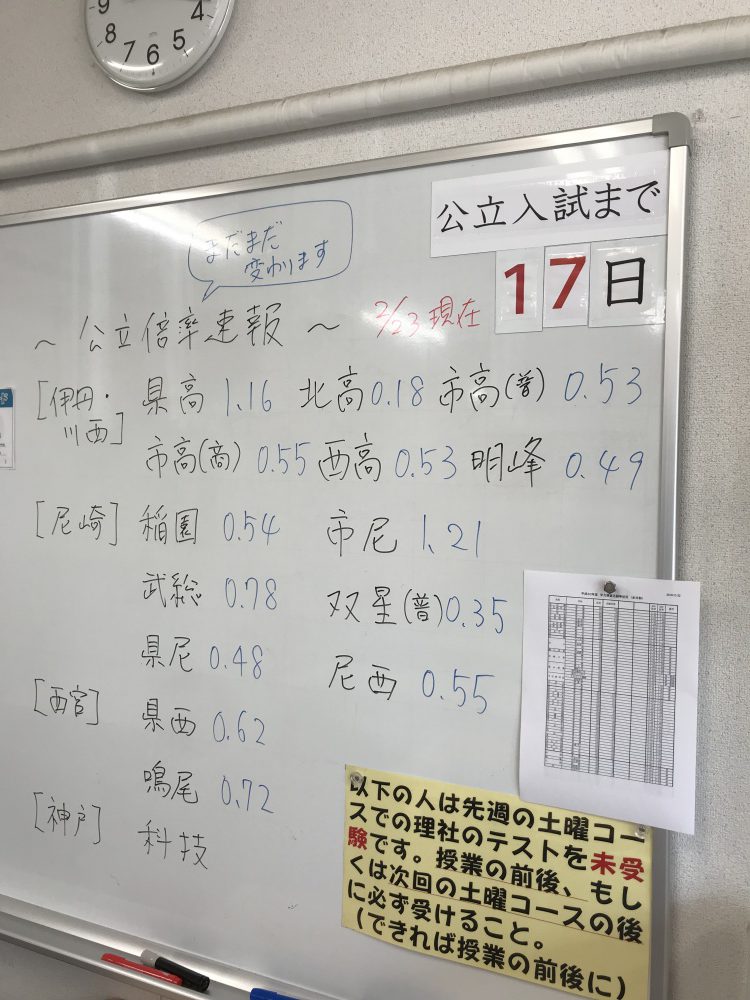 9 4
8 7 6 5
公立入試まで
17日
まだまだ
変わります
～ 公立倍率速報 ～ 2/23現在
[伊丹・川西] 県高 1.16 北高 0.18 市高(普) 0.53
市高(商) 0.55 西高 0.53 明峰 0.49
[尼崎] 稲園 0.54 市尼 1.21
武総 0.78 双星(普) 0.35
県尼 0.48 尼西 0.55
[西宮] 県西 0.62
鳴尾 0.72
[神戸] 科技
以下の人は先週の土曜コー
スでの理社のテストを未受
験です。授業の前後、もし
くは次回の土曜コースの後
に必ず受けること。
(できれば授業の前後に)